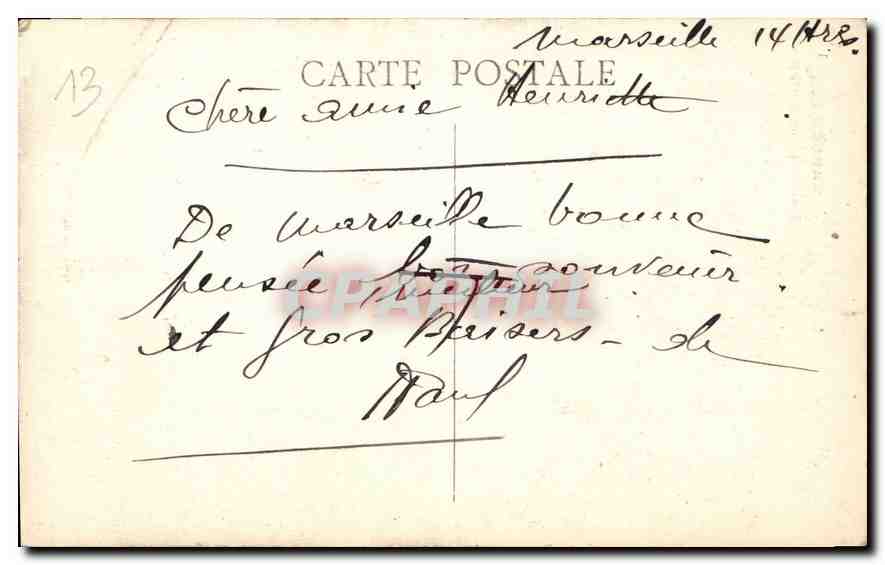 Marseille 14 Hres.
13
CARTE POSTALE
Chère amie Henriette
De Marseille bonne
pensée gros souvenir
meilleur
CPAPHIL
et gros Baisers - de
Paul